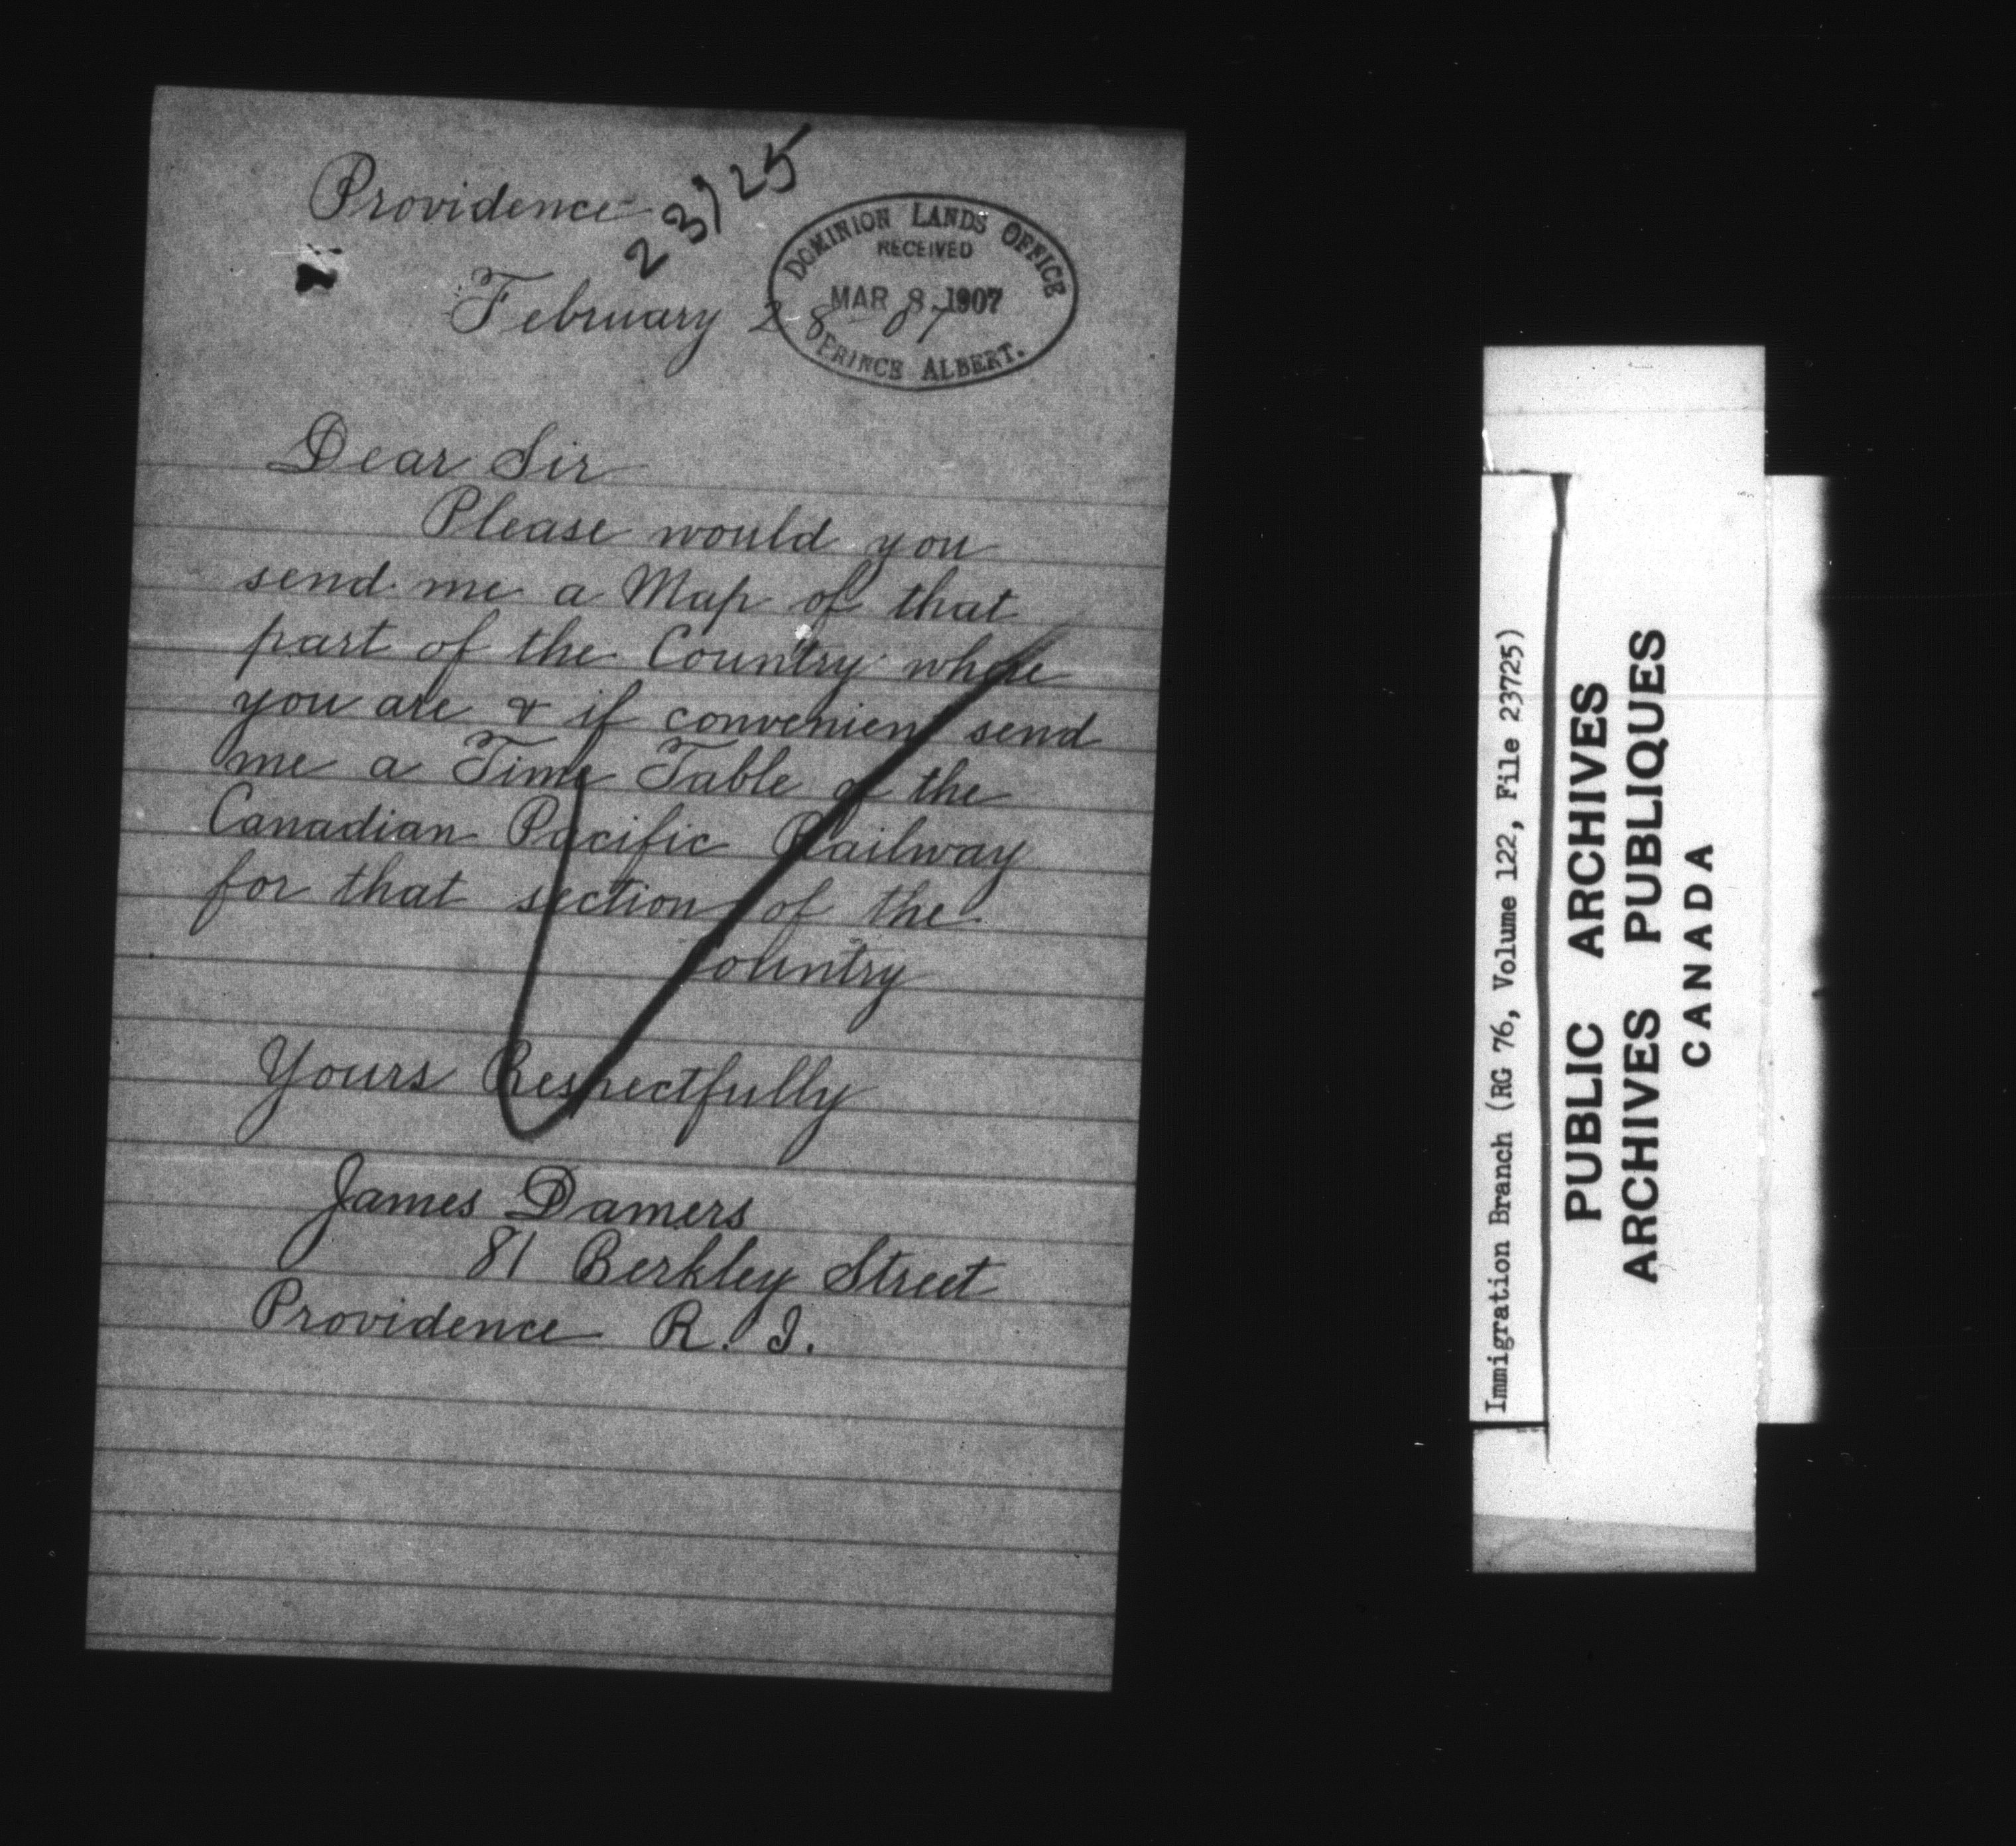 Providence
23725
February 28 - 07
DOMINION LANDS OFFICE
RECEIVED
MAR 8 1907
PRINCE ALBERT.
Dear Sir
Please would you
send me a Map of that
part of the Country where
you are & if convenient send
me a Time Table of the
Canadian Pacific Railway
for that section of the
Country
Yours Respectfully
James Damers
81 Berkley Street
Providence R. I.
Immigration Branch (RG 76, Volume 122, File 23725)
PUBLIC ARCHIVES
ARCHIVES PUBLIQUES
CANADA